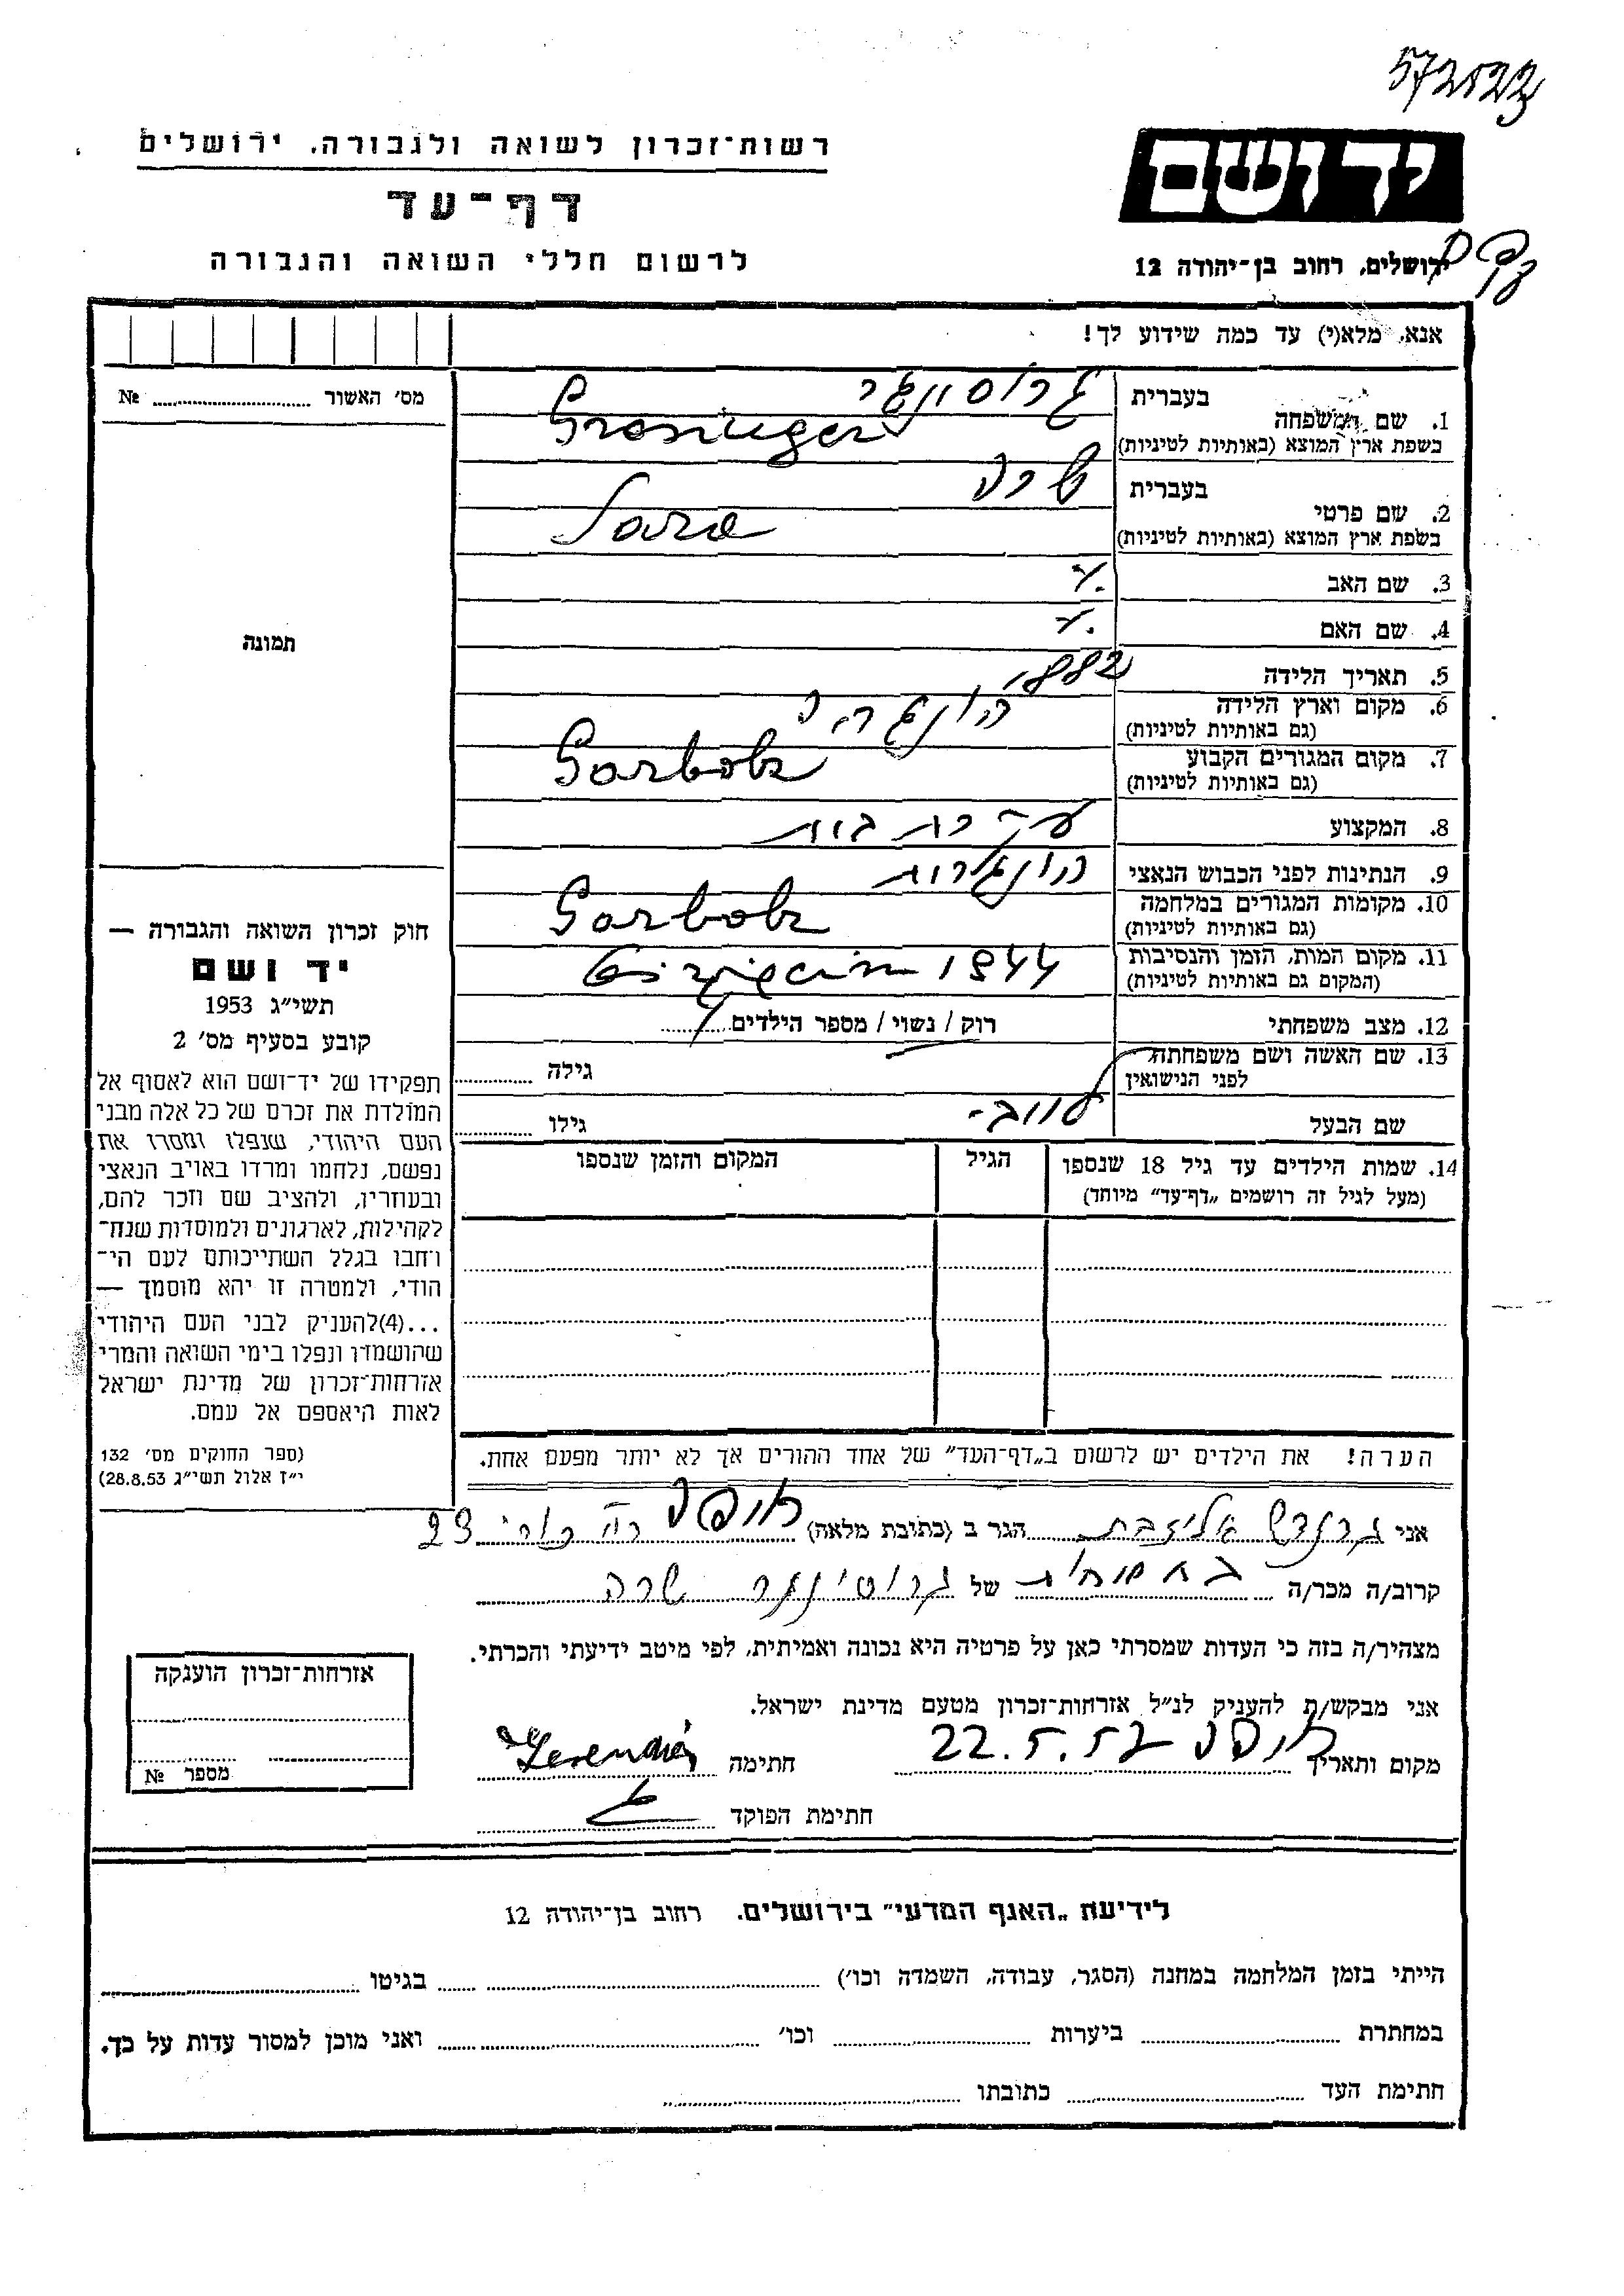 572522
רשות־זכרון לשואה ולגבורה. ירושלים
דף־עד
לרשום חללי השואה והגבורה
יד ושם
ירושלים, רחוב בן־יהודה 12
אנא, מלא(י) עד כמה שידוע לך!
מס׳ האשור № ....................
1. שם המשפחה בעברית
בשפת ארץ המוצא (באותיות לטיניות) Grosinger
2. שם פרטי בעברית שרה
בשפת ארץ המוצא (באותיות לטיניות) Sara
3. שם האב
4. שם האם
5. תאריך הלידה 1882
6. מקום וארץ הלידה הונגריה
(גם באותיות לטיניות)
7. מקום המגורים הקבוע Garbolz
(גם באותיות לטיניות)
8. המקצוע עקרת בית
9. הנתינות לפני הכבוש הנאצי הונגרית
10. מקומות המגורים במלחמה Garbolz
(גם באותיות לטיניות)
11. מקום המות, הזמן והנסיבות 1944
(המקום גם באותיות לטיניות)
12. מצב משפחתי רוק / נשוי / מספר הילדים
13. שם האשה ושם משפחתה גילה
לפני הנישואין
שם הבעל גילו
14. שמות הילדים עד גיל 18 שנספו הגיל המקום והזמן שנספו
(מעל לגיל זה רושמים „דף־עד״ מיוחד)
הערה! את הילדים יש לרשום ב„דף־העד״ של אחד ההורים אך לא יותר מפעם אחת.
תמונה
חוק זכרון השואה והגבורה —
יד ושם
תשי״ג 1953
קובע בסעיף מס׳ 2
תפקידו של יד־ושם הוא לאסוף אל
המולדת את זכרם של כל אלה מבני
העם היהודי, שנפלו ומסרו את
נפשם, נלחמו ומרדו באויב הנאצי
ובעוזריו, ולהציב שם וזכר להם,
לקהילות, לארגונים ולמוסדות שנח־
רחבו בגלל השתייכותם לעם הי־
הודי, ולמטרה זו יהא מוסמך —
...(4)להעניק לבני העם היהודי
שהושמדו ונפלו בימי השואה והמרי
אזרחות־זכרון של מדינת ישראל
לאות היאספם אל עמם.
(ספר החוקים מס׳ 132
י״ז אלול תשי״ג 28.8.53)
אני אליזבת הגר ב (כתובת מלאה) חיפה 23
קרוב/ה מכר/ה של שרה
מצהיר/ה בזה כי העדות שמסרתי כאן על פרטיה היא נכונה ואמיתית, לפי מיטב ידיעתי והכרתי.
אני מבקש/ת להעניק לנ״ל אזרחות־זכרון מטעם מדינת ישראל.
מקום ותאריך חיפה 22.5.57 חתימה
חתימת הפוקד
אזרחות־זכרון הוענקה
מספר №
לידיעת „האגף המדעי״ בירושלים. רחוב בן־יהודה 12
הייתי בזמן המלחמה במחנה (הסגר, עבודה, השמדה וכו׳) .................... בגיטו ....................
במחתרת .................... ביערות .................... וכו׳ .................... ואני מוכן למסור עדות על כך.
חתימת העד .................... כתובתו ....................